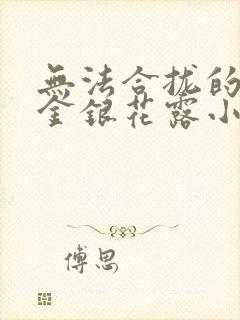 無法合拢的
金銀花露小
傅思